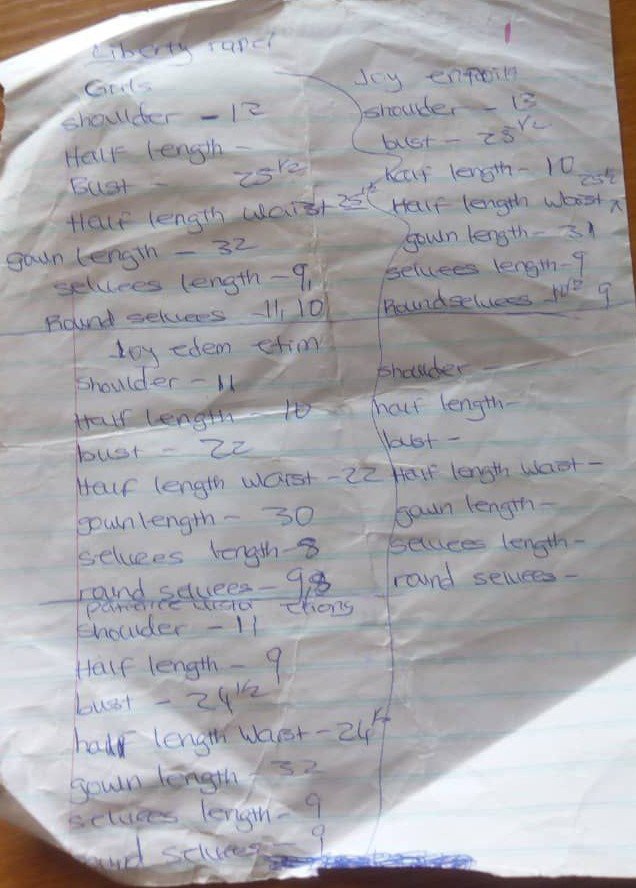 Liberty
Girls
shoulder - 12
Half length -
Bust - 25 1/2
Half length waist 25 1/2
gown length - 32
selvees length - 9,
Round selvees - 11, 10
Joy
shoulder - 13
bust - 25 1/2
half length - 10
25 1/2
Half length waist ^
gown length - 31
selvees length - 9
Round selvees - 9
Joy edem etim
shoulder - 11
Half length - 10
bust - 22
Half length waist - 22
gown length - 30
selvees length - 8
round selvees - 9,8
shoulder -
half length -
bust -
Half length waist -
gown length -
selvees length -
round selvees -
shoulder - 11
Half length - 9
bust - 24 1/2
half length waist - 24 1/2
gown length - 32
selvees length - 9
round selvees - 9